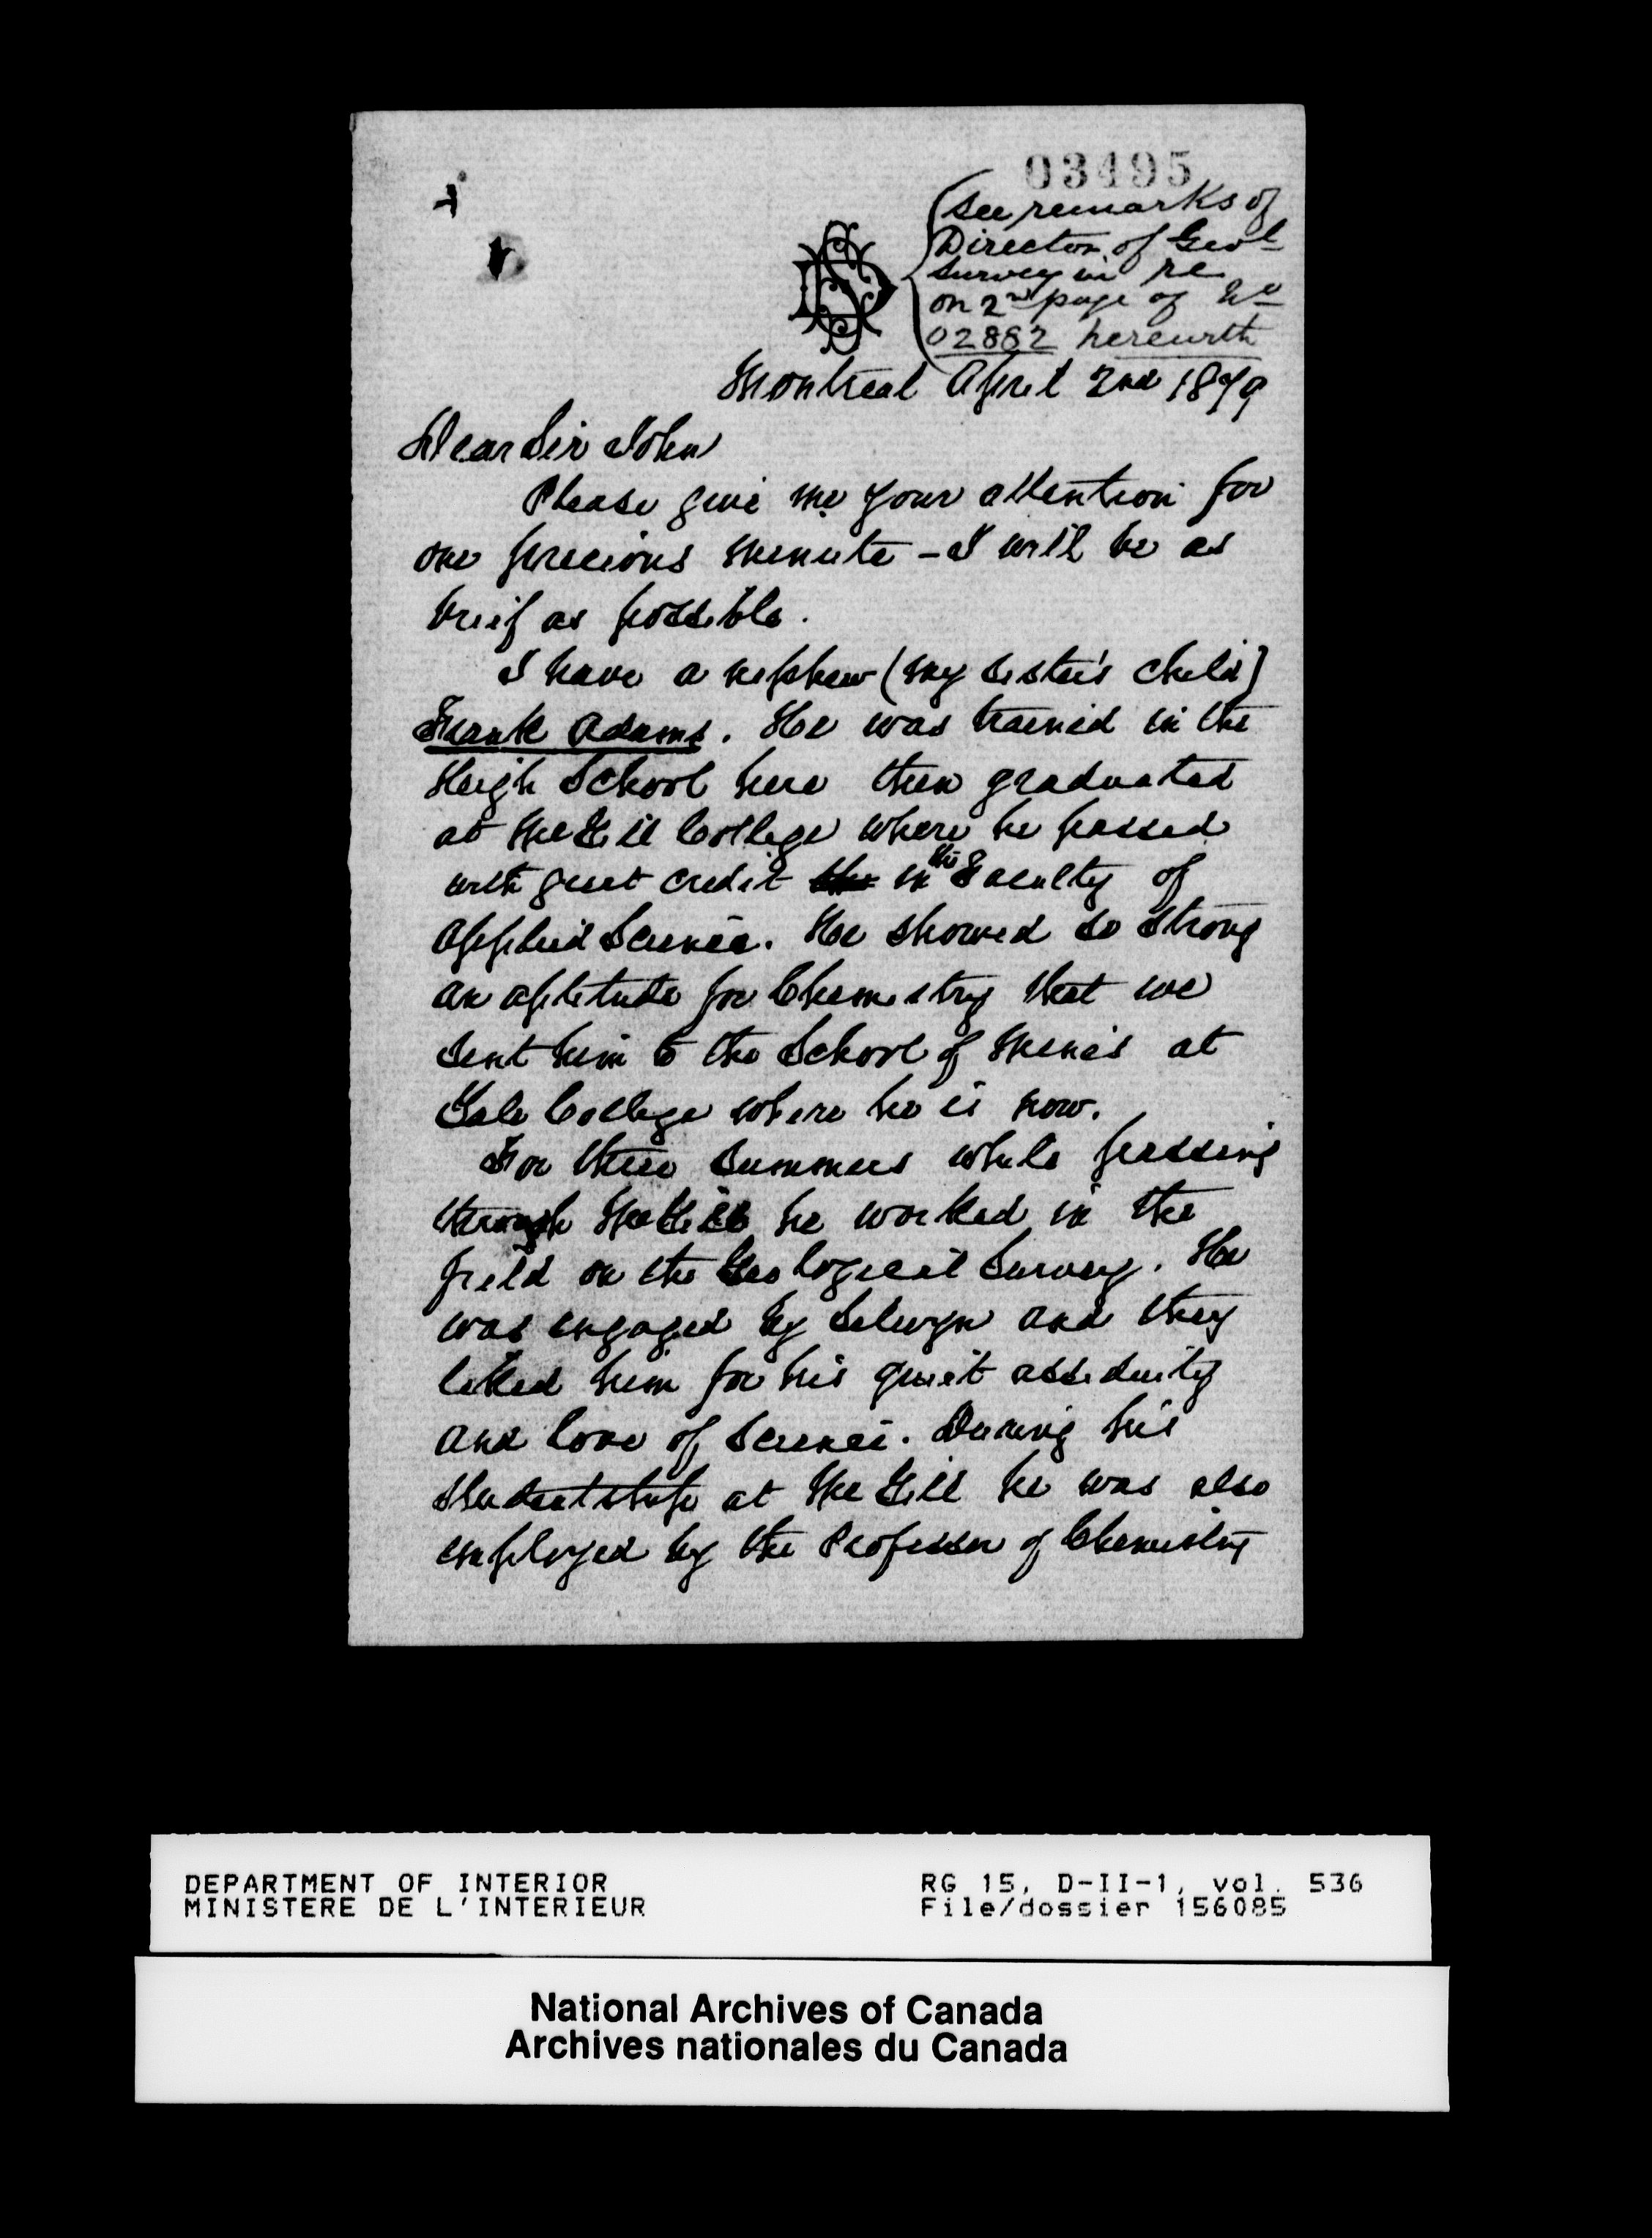 03495
See remarks of
Director of Geol
Survey in re
on 2nd page of No
02882 herewith
Montreal April 2nd 1879
Dear Sir John
Please give me your attention for
one precious minute - I will be as
brief as possible.
I have a nephew (my sister's child)
Frank Adams. He was trained in the
High School here then graduated
at McGill College where he passed
with great credit in the Faculty of
Applied Science. He showed so strong
an aptitude for Chemistry that we
sent him to the School of Mines at
Yale College where he is now.
For three summers while passing
through McGill he worked in the
field on the Geological Survey. He
was engaged by Selwyn and they
liked him for his quiet assiduity
and love of Science. During his
studentship at McGill he was also
employed by the Professor of Chemistry
DEPARTMENT OF INTERIOR RG 15, D-II-1, vol. 536
MINISTERE DE L'INTERIEUR File/dossier 156085
National Archives of Canada
Archives nationales du Canada